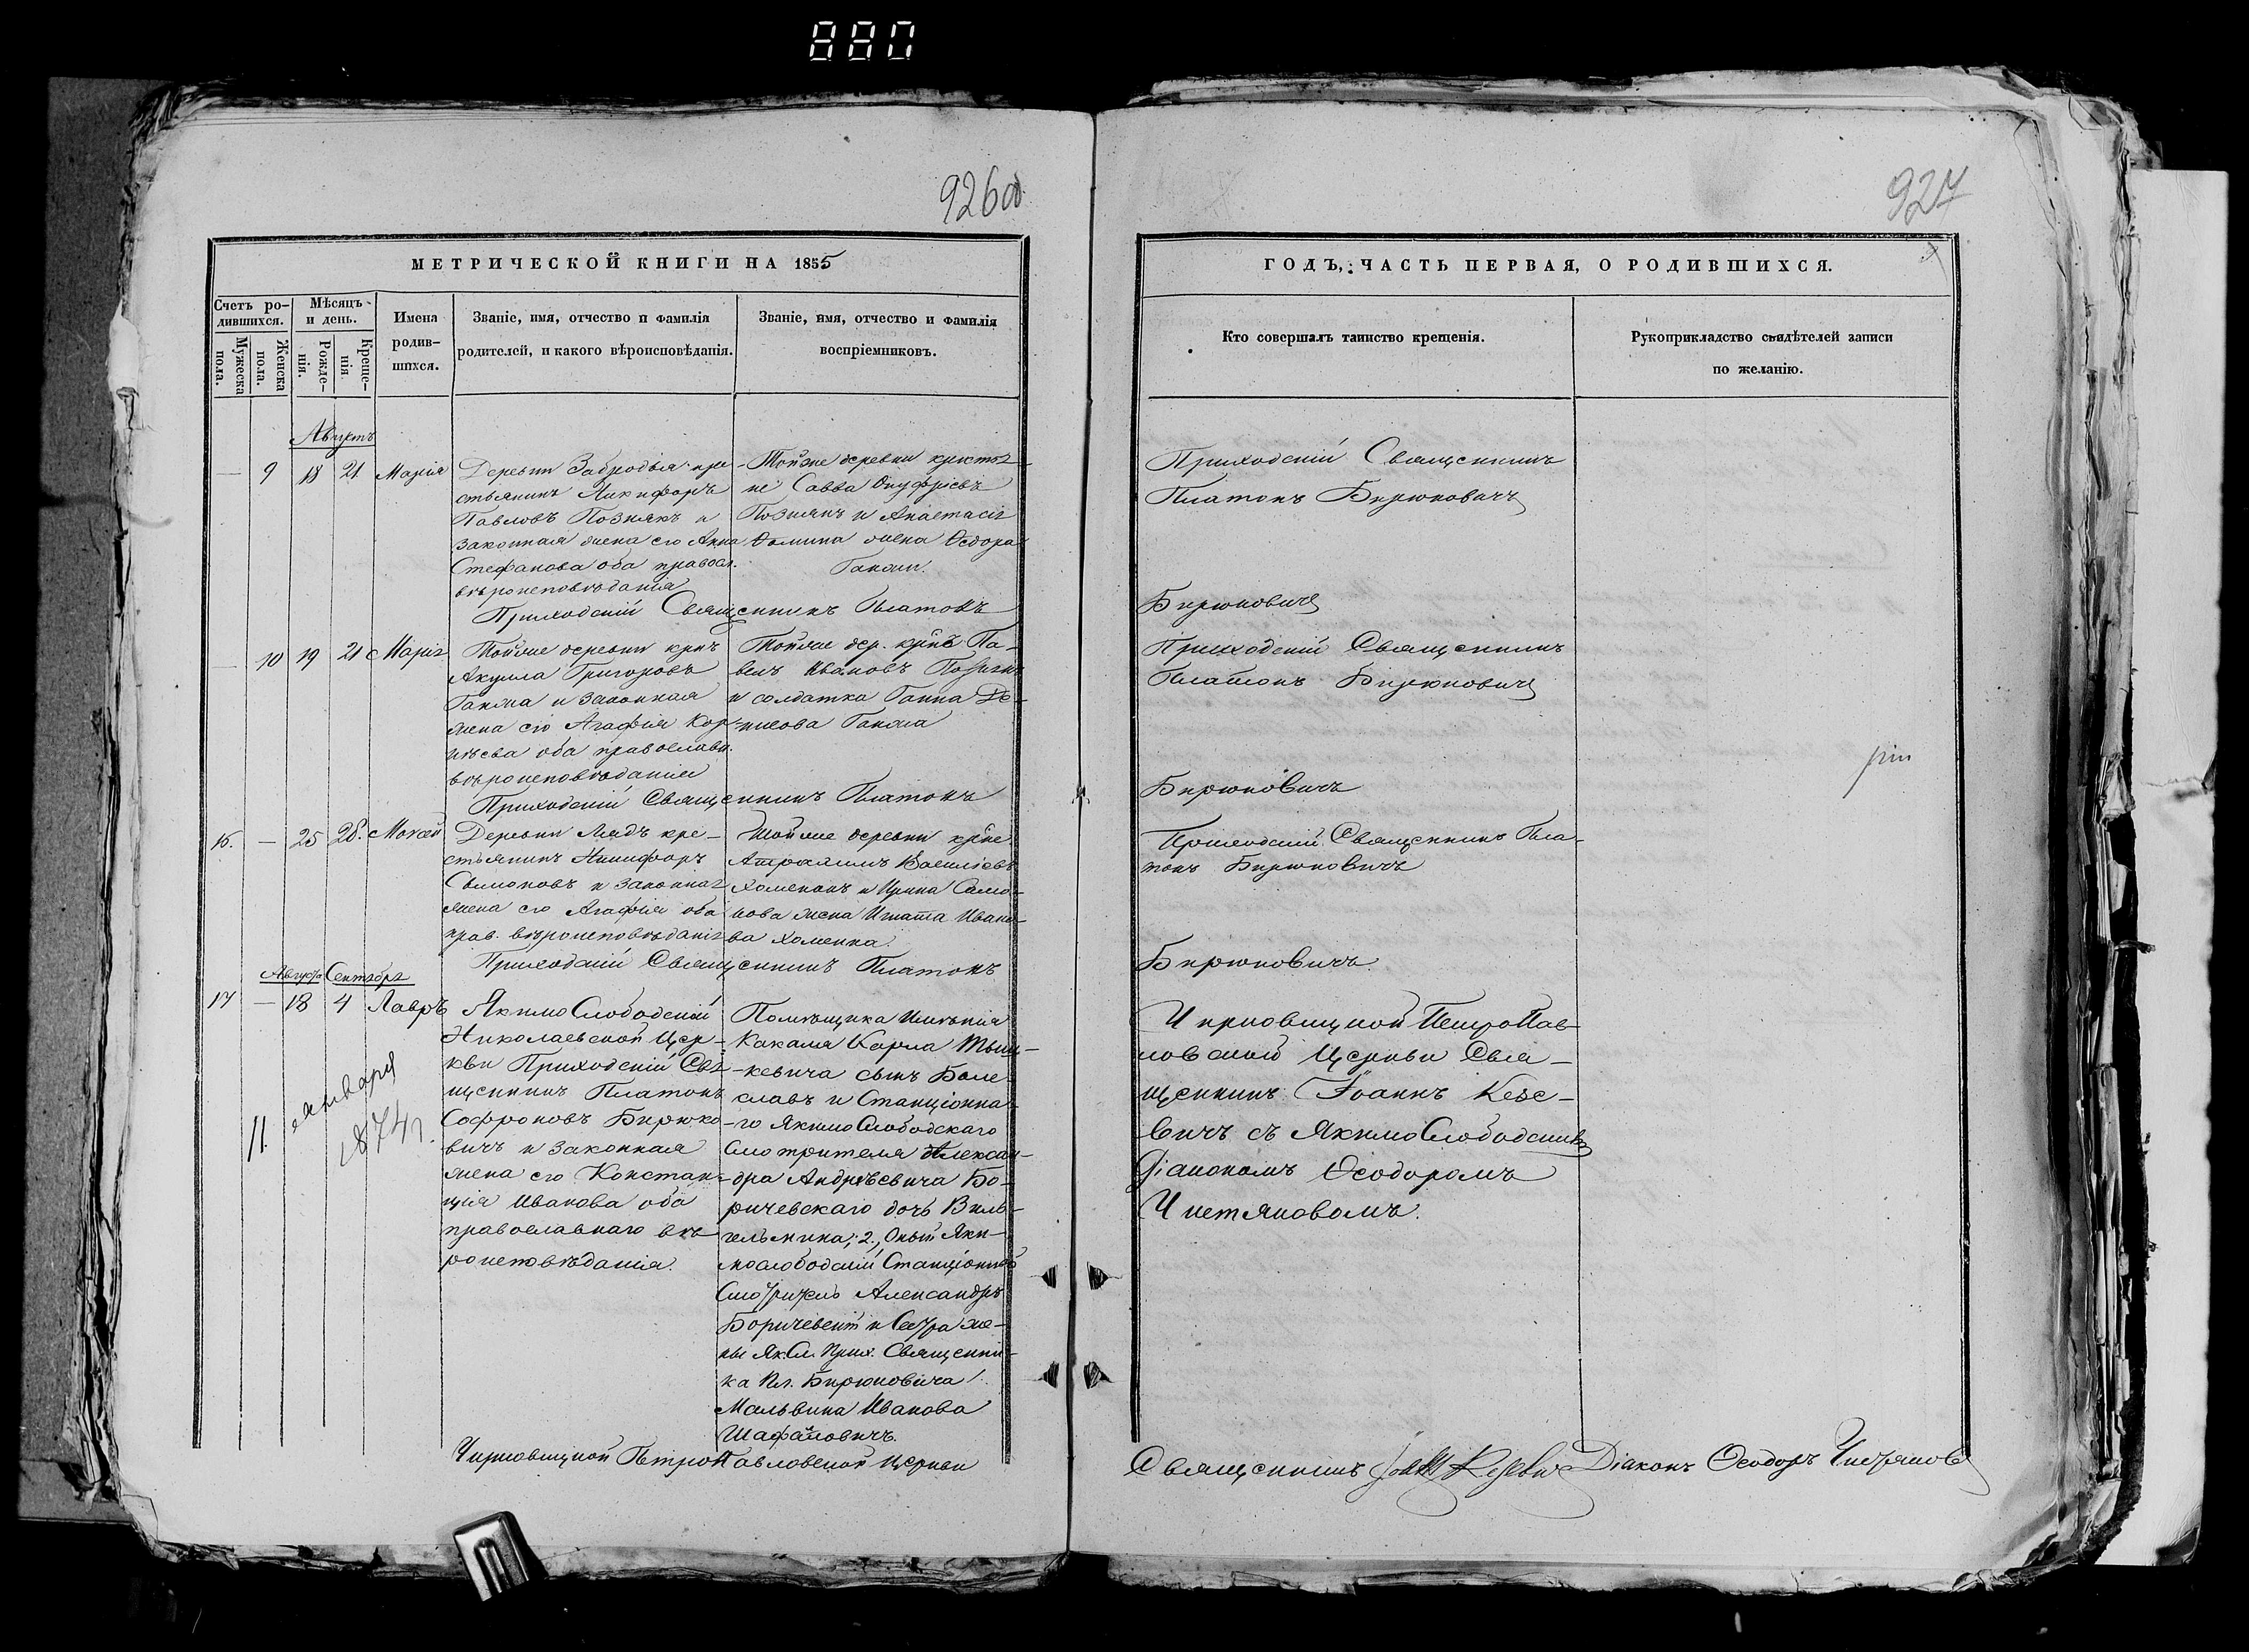 880
926об
927
МЕТРИЧЕСКОЙ КНИГИ НА 1855
Счетъ ро-
дившихся.
Мужеска
пола.
Женска
пола.
Мѣсяцъ
и день.
Рожде-
нія.
Креще-
нія
Имена
родив-
шихся.
Званіе, имя, отчество и фамилія
родителей, и какого вѣроисповѣданія.
Званіе, имя, отчество и фамилія
воспріемниковъ.
ГОДЪ, ЧАСТЬ ПЕРВАЯ, О РОДИВШИХСЯ.
Кто совершалъ таинство крещенія.
Рукоприкладство свидѣтелей записи
по желанію.
Августъ
— 9 18 21 Марія
Деревни Забродья кре-
стьянинъ Никифоръ
Павловъ Познякъ и
законная жена его Анна
Стефанова оба правосл.
вѣроисповѣданія
Тойже деревни кресть-
не Савва Онуфріевъ
Познякъ и Анастасія
Ѳомина жена Ѳедора
Ганжи.
Приходскій Священникъ
Платонъ Бирюковичъ
Приходскій Священникъ Платонъ Бирюковичъ
— 10 19 21 Марія
Тойже деревни крнъ
Акулла Григоровъ
Ганжа и законная
жена его Агафія Кор-
нѣева оба православн.
вѣроисповѣданія
Тойже дер. крнъ Па-
велъ Ивановъ Познякъ
и солдатка Ганна Де-
нисова Ганжа
Приходскій Священникъ
Платонъ Бирюковичъ
Приходскій Священникъ Платонъ Бирюковичъ
16. — 25 28. Моѵсей
Деревни Лядъ кре-
стьянинъ Никифоръ
Сымоновъ и законная
жена его Агафія оба
прав. вѣроисповѣданія
Тойже деревни крне
Атрахимъ Василіевъ
Хоменокъ и Ирина Само-
нова жена Игната Ивано-
ва Хоменка.
Приходскій Священникъ Пла-
тонъ Бирюковичъ
Приходскій Священникъ Платонъ Бирюковичъ.
Августъ Сентябрь
17 — 18 4 Лавръ
11. января
1874 г.
Якимо Слободской
Николаевской Цер-
кви Приходскій Свя-
щенникъ Платонъ
Софроновъ Бирюко-
вичъ и законная
жена его Констан-
ція Иванова оба
православнаго вѣ-
роисповѣданія.
Помѣщика имѣнія
Какаля Карла Тыш-
кевича сынъ Боле-
славъ и Станціонна-
го Якимо Слободскаго
Смотрителя Алексан-
дра Андрѣевича Бо-
ричевскаго дочь Виль-
гельмина; 2., Оный Яки-
мослободскій Станціонный
Смотритель Александръ
Боричевскій и Сестра же-
ны Як.Сл. Прих. Священни-
ка Пл. Бирюковича
Мальвина Иванова
Шафаловичъ.
Петро Пав-
ловской Церкви Свя-
щенникъ Іоаннъ Кезе-
вичъ съ Якимо Слободскимъ
Діакономъ Ѳеодоромъ
Чистяковомъ.
Петропавловской церкви Священникъ Діаконъ Ѳеодоръ Чистяковъ